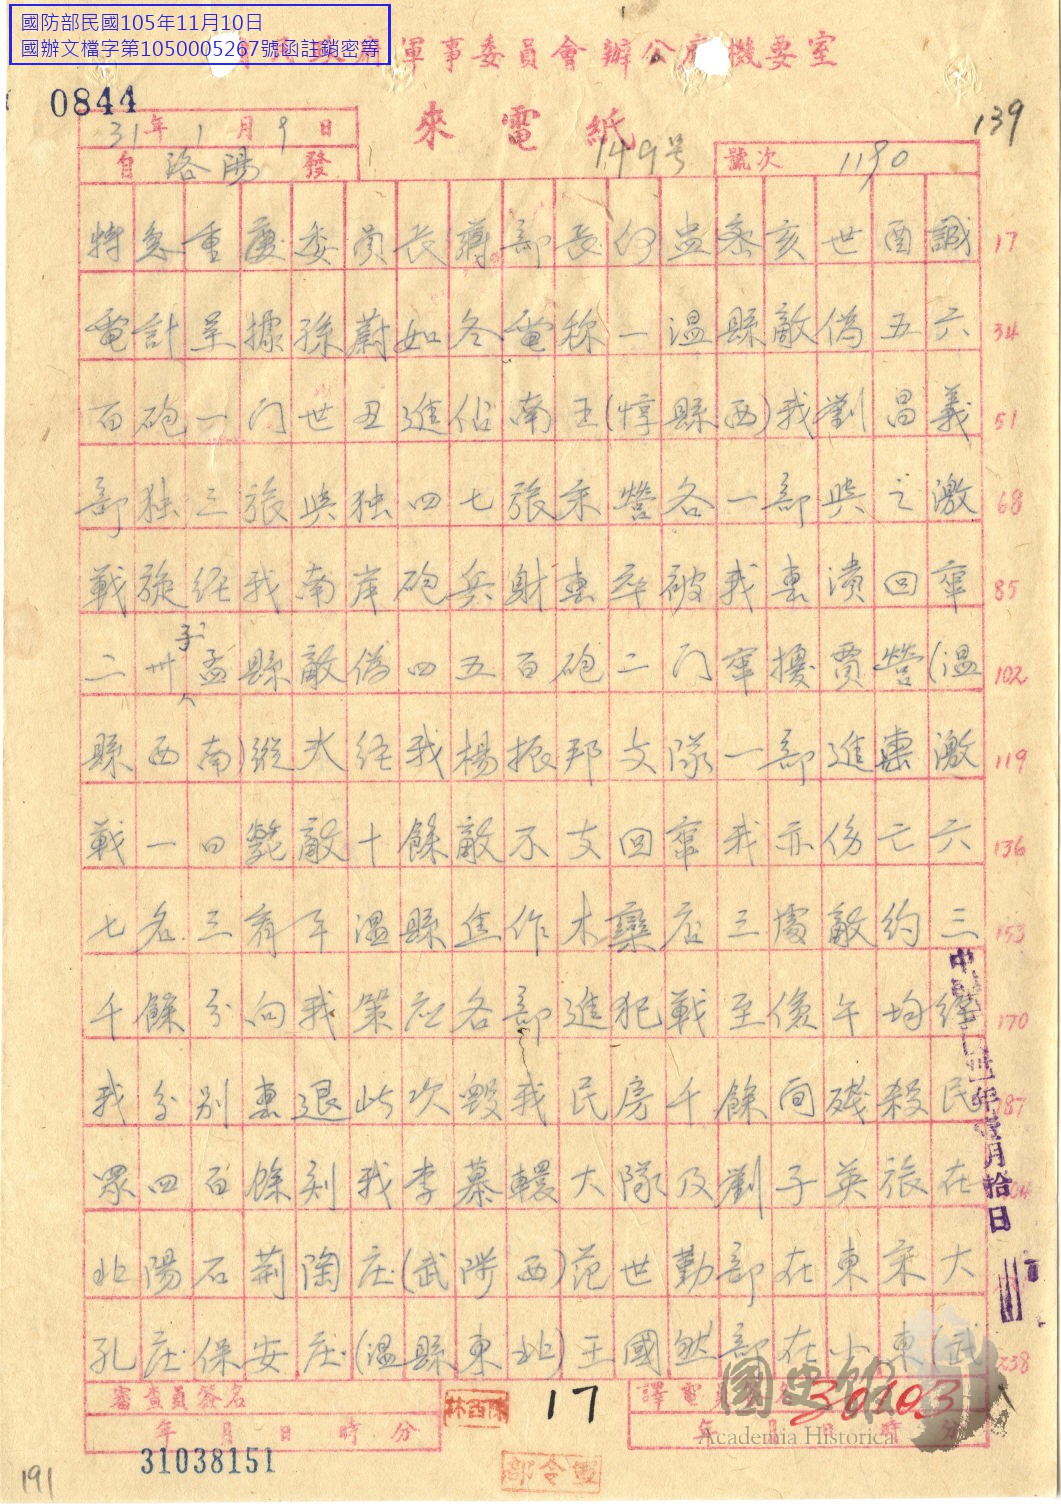 國防部民國105年11月10日
國辦文檔字第1050005267號函註銷密等
軍事委員會辦公廳機要室
0844
來電紙
139
31年1月9日
自洛陽發
149号
號次 1190
特急重慶委員長蔣部長何盅密亥世酉誠 17
電計呈據孫蔚如冬電称一溫縣敵偽五六 34
百砲一门世丑進佔南王(惇縣西)我劉昌義 51
部独三旅與独四七旅朱營各一部與之激 68
戰旋経我南岸砲兵射擊卒被我擊潰回竄 85
二卅子孟縣敵偽四五百砲二门竄擾賈營(溫 102
縣西南)縱火経我楊振邦支隊一部進擊激 119
戰一日斃敵十餘敵不支回竄我亦伤亡六 136
七名三有午溫縣焦作木欒店三處敵約三 153
千餘分向我策应各部進犯戰至儉午均經 170
我分别擊退此次毀我民房千餘间殘殺民 187
眾四百餘刻我李慕轅大隊及劉子英旅在
北陽石荆陶庄(武陟西)范世勤部在東宋大
孔庄保安庄(溫縣東北)王國然部在小東(武 238
審查員簽名
年月日時分
17
譯電員簽名
30103
年月日時分
31038151
191
國史館
Academia Historica